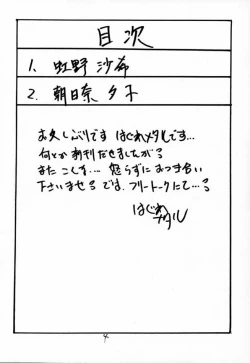 目次
1. 虹野 沙希
2. 朝日奈 夕子
お久しぶりです はぐれメタルです…
何とか新刊だせましたが
また こんな… 怒らずにおつき合い
下さいませ では、フリートークにて…
はぐれ
メタル
4